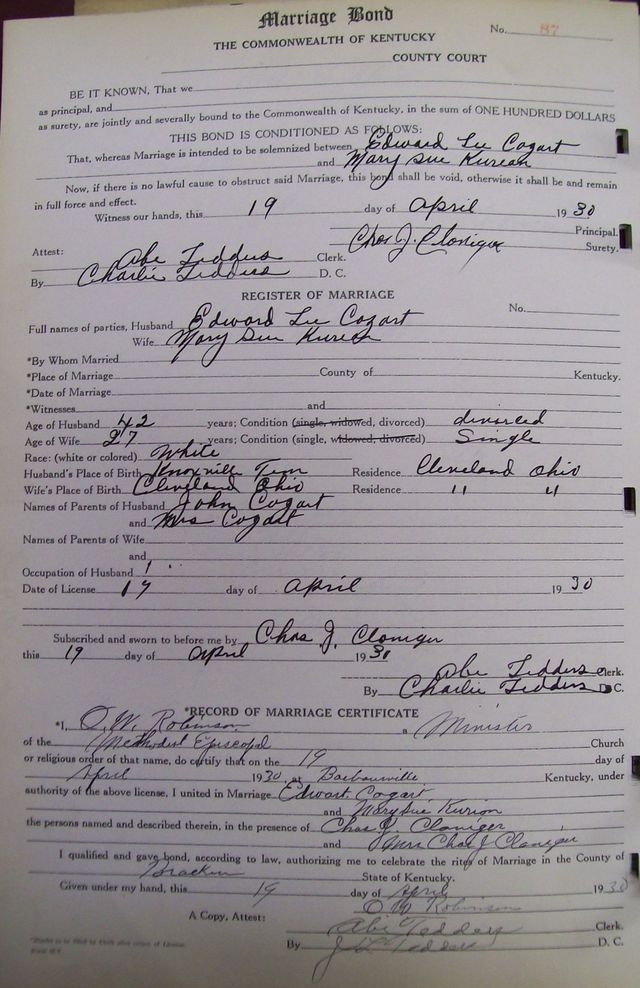 Marriage Bond
No. 87
THE COMMONWEALTH OF KENTUCKY
COUNTY COURT
BE IT KNOWN, That we
as principal, and
as surety, are jointly and severally bound to the Commonwealth of Kentucky, in the sum of ONE HUNDRED DOLLARS
THIS BOND IS CONDITIONED AS FOLLOWS:
That, whereas Marriage is intended to be solemnized between Edward Lee Cozart
and Mary Sue Kurean
Now, if there is no lawful cause to obstruct said Marriage, this bond shall be void, otherwise it shall be and remain
in full force and effect.
Witness our hands, this 19 day of April 1930
Principal.
Chas J. Cloniger Surety.
Attest: Abe Tedders Clerk.
By Charlie Tedders D. C.
REGISTER OF MARRIAGE
No.
Full names of parties, Husband Edward Lee Cozart
Wife Mary Sue Kurean
*By Whom Married
*Place of Marriage County of Kentucky.
*Date of Marriage
*Witnesses and
Age of Husband 42 years; Condition (single, widowed, divorced) divorced
Age of Wife 27 years; Condition (single, widowed, divorced) Single
Race: (white or colored) White
Husband's Place of Birth Knoxville Tenn Residence Cleveland Ohio
Wife's Place of Birth Cleveland Ohio Residence " "
Names of Parents of Husband John Cozart
and Mrs Cozart
Names of Parents of Wife
and
Occupation of Husband
Date of License 19 day of April 1930
Subscribed and sworn to before me by Chas J. Cloniger
this 19 day of April 1930
Abe Tedders Clerk.
By Charlie Tedders D.C.
*RECORD OF MARRIAGE CERTIFICATE
*I, O.W. Robinson a Minister
of the Methodist Episcopal Church
or religious order of that name, do certify that on the 19 day of
April 1930 at Barbourville Kentucky, under
authority of the above license, I united in Marriage Edwart Cozart
and Mary Sue Kurion
the persons named and described therein, in the presence of Chas J Cloniger
and Mrs Chas J Cloniger
I qualified and gave bond, according to law, authorizing me to celebrate the rites of Marriage in the County of
Bracken State of Kentucky.
Given under my hand, this 19 day of April 1930
O W Robinson
A Copy, Attest: Abe Tedders Clerk.
By Tedders D. C.